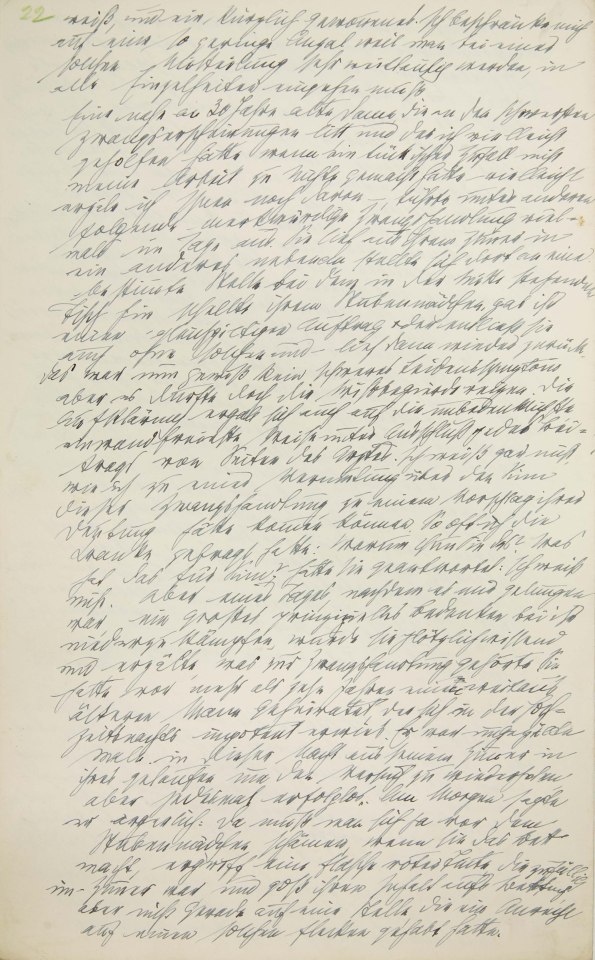 22
weiß, und ein kürzlich gewonnenes. Ich beschränke mich
auf eine so geringe Anzal weil man bei einer
solchen Mitteilung sehr weitläufig werden, in
alle Einzelheiten eingehen muß
Eine nahe an 30 Jahre alte Dame die an den schwersten
Zwangserscheinungen litt und der ich vielleicht
geholfen hätte wenn ein tückischer Zufall nicht
meine Arbeit zu nichte gemacht hätte vielleicht
erzäle ich Ihnen noch davon – führte unter anderen
folgende merkwürdige Zwangshandlung viel-
mals im Tage aus. Sie lief aus ihrem Zimer in
ein anderes nebenan stellte sich dort an eine
bestimte Stelle bei dem in der Mitte stehenden
Tisch hin schellte ihrem Stubenmädchen, gab ihr
einen gleichgiltigen Auftrag oder entließ sie
auch ohne solchen und lief dann wieder zurück.
Das war nun gewiß kein schweres Leidenssymptom,
aber es durfte doch die Wißbegierde reizen. Die
Aufklärung ergab sich auch auf die unbedenklichste
einwandfreieste Weise unter Ausschluß jedes Bei-
trags von Seiten des Arztes. Ich weiß gar nicht,
wie ich zu einer Vermutung über den Sinn
dieser Zwangshandlung zu einem Vorschlag ihrer
Deutung hätte komen können. So oft ich die
Kranke gefragt hatte: Warum thun Sie das? Was
hat das für Sinn? hatte sie geantwortet: Ich weiß
nicht. Aber eines Tages nachdem es mir gelungen
war ein großes prinzipielles Bedenken bei ihr
niederzukämpfen, wurde sie plötzlich wissend
und erzälte was zur Zwangshandlung gehörte. Sie
hatte vor mehr als zehn Jahren einen weitaus
älteren Mann geheiratet der sich in der Hoch-
zeitsnacht impotent erwies. Er war ungezälte
Male in dieser Nacht aus seinem Zimer in
ihres gelaufen um den Versuch zu wiederholen
aber jedesmal erfolglos. Am Morgen sagte
er ärgerlich: Da muß man sich ja vor dem
Stubenmädchen schämen wenn sie das Bett
macht, ergriff eine Flasche roter Tinte die zufällig
im Zimer war und goß ihren Inhalt aufs Bettuch
aber nicht gerade auf eine Stelle die ein Anrecht
auf einen solchen Flecken gehabt hätte.